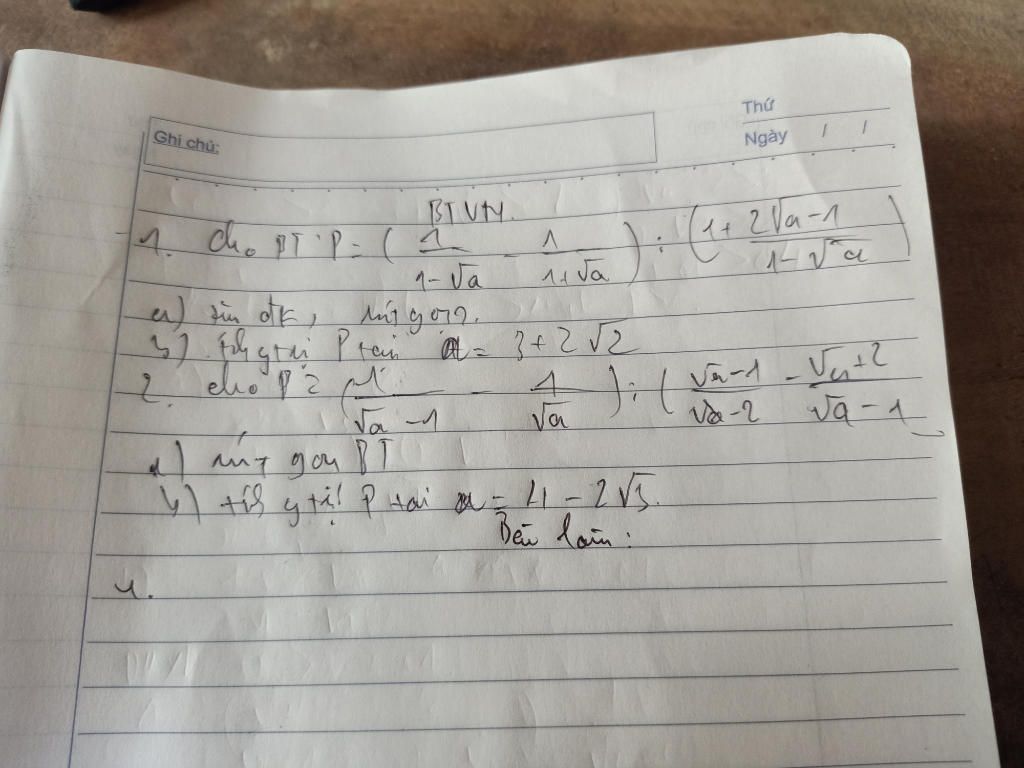 Thứ
Ghi chú:
Ngày / /
BTVN.
1. Cho BT: P = ( 1/(1-√a) - 1/(1+√a) ) : ( 1 + (2√a-1)/(1-√a) )
a) tìm đk, rút gọn.
b) tính gtrị P tại a = 3+2√2
2. cho P = ( 1/(√a-1) - 1/√a ) : ( (√a-1)/(√a-2) - (√a+2)/(√a-1)
a) rút gọn BT
b) tính gtrị P tại a = 4-2√3.
Bài làm:
1.